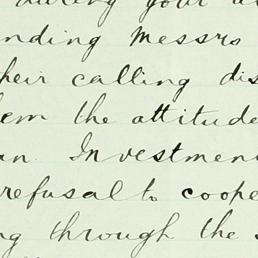 during your
nding Messrs
heir calling dis
em the attitude
an. Investmen
refusal to coope
ng through the